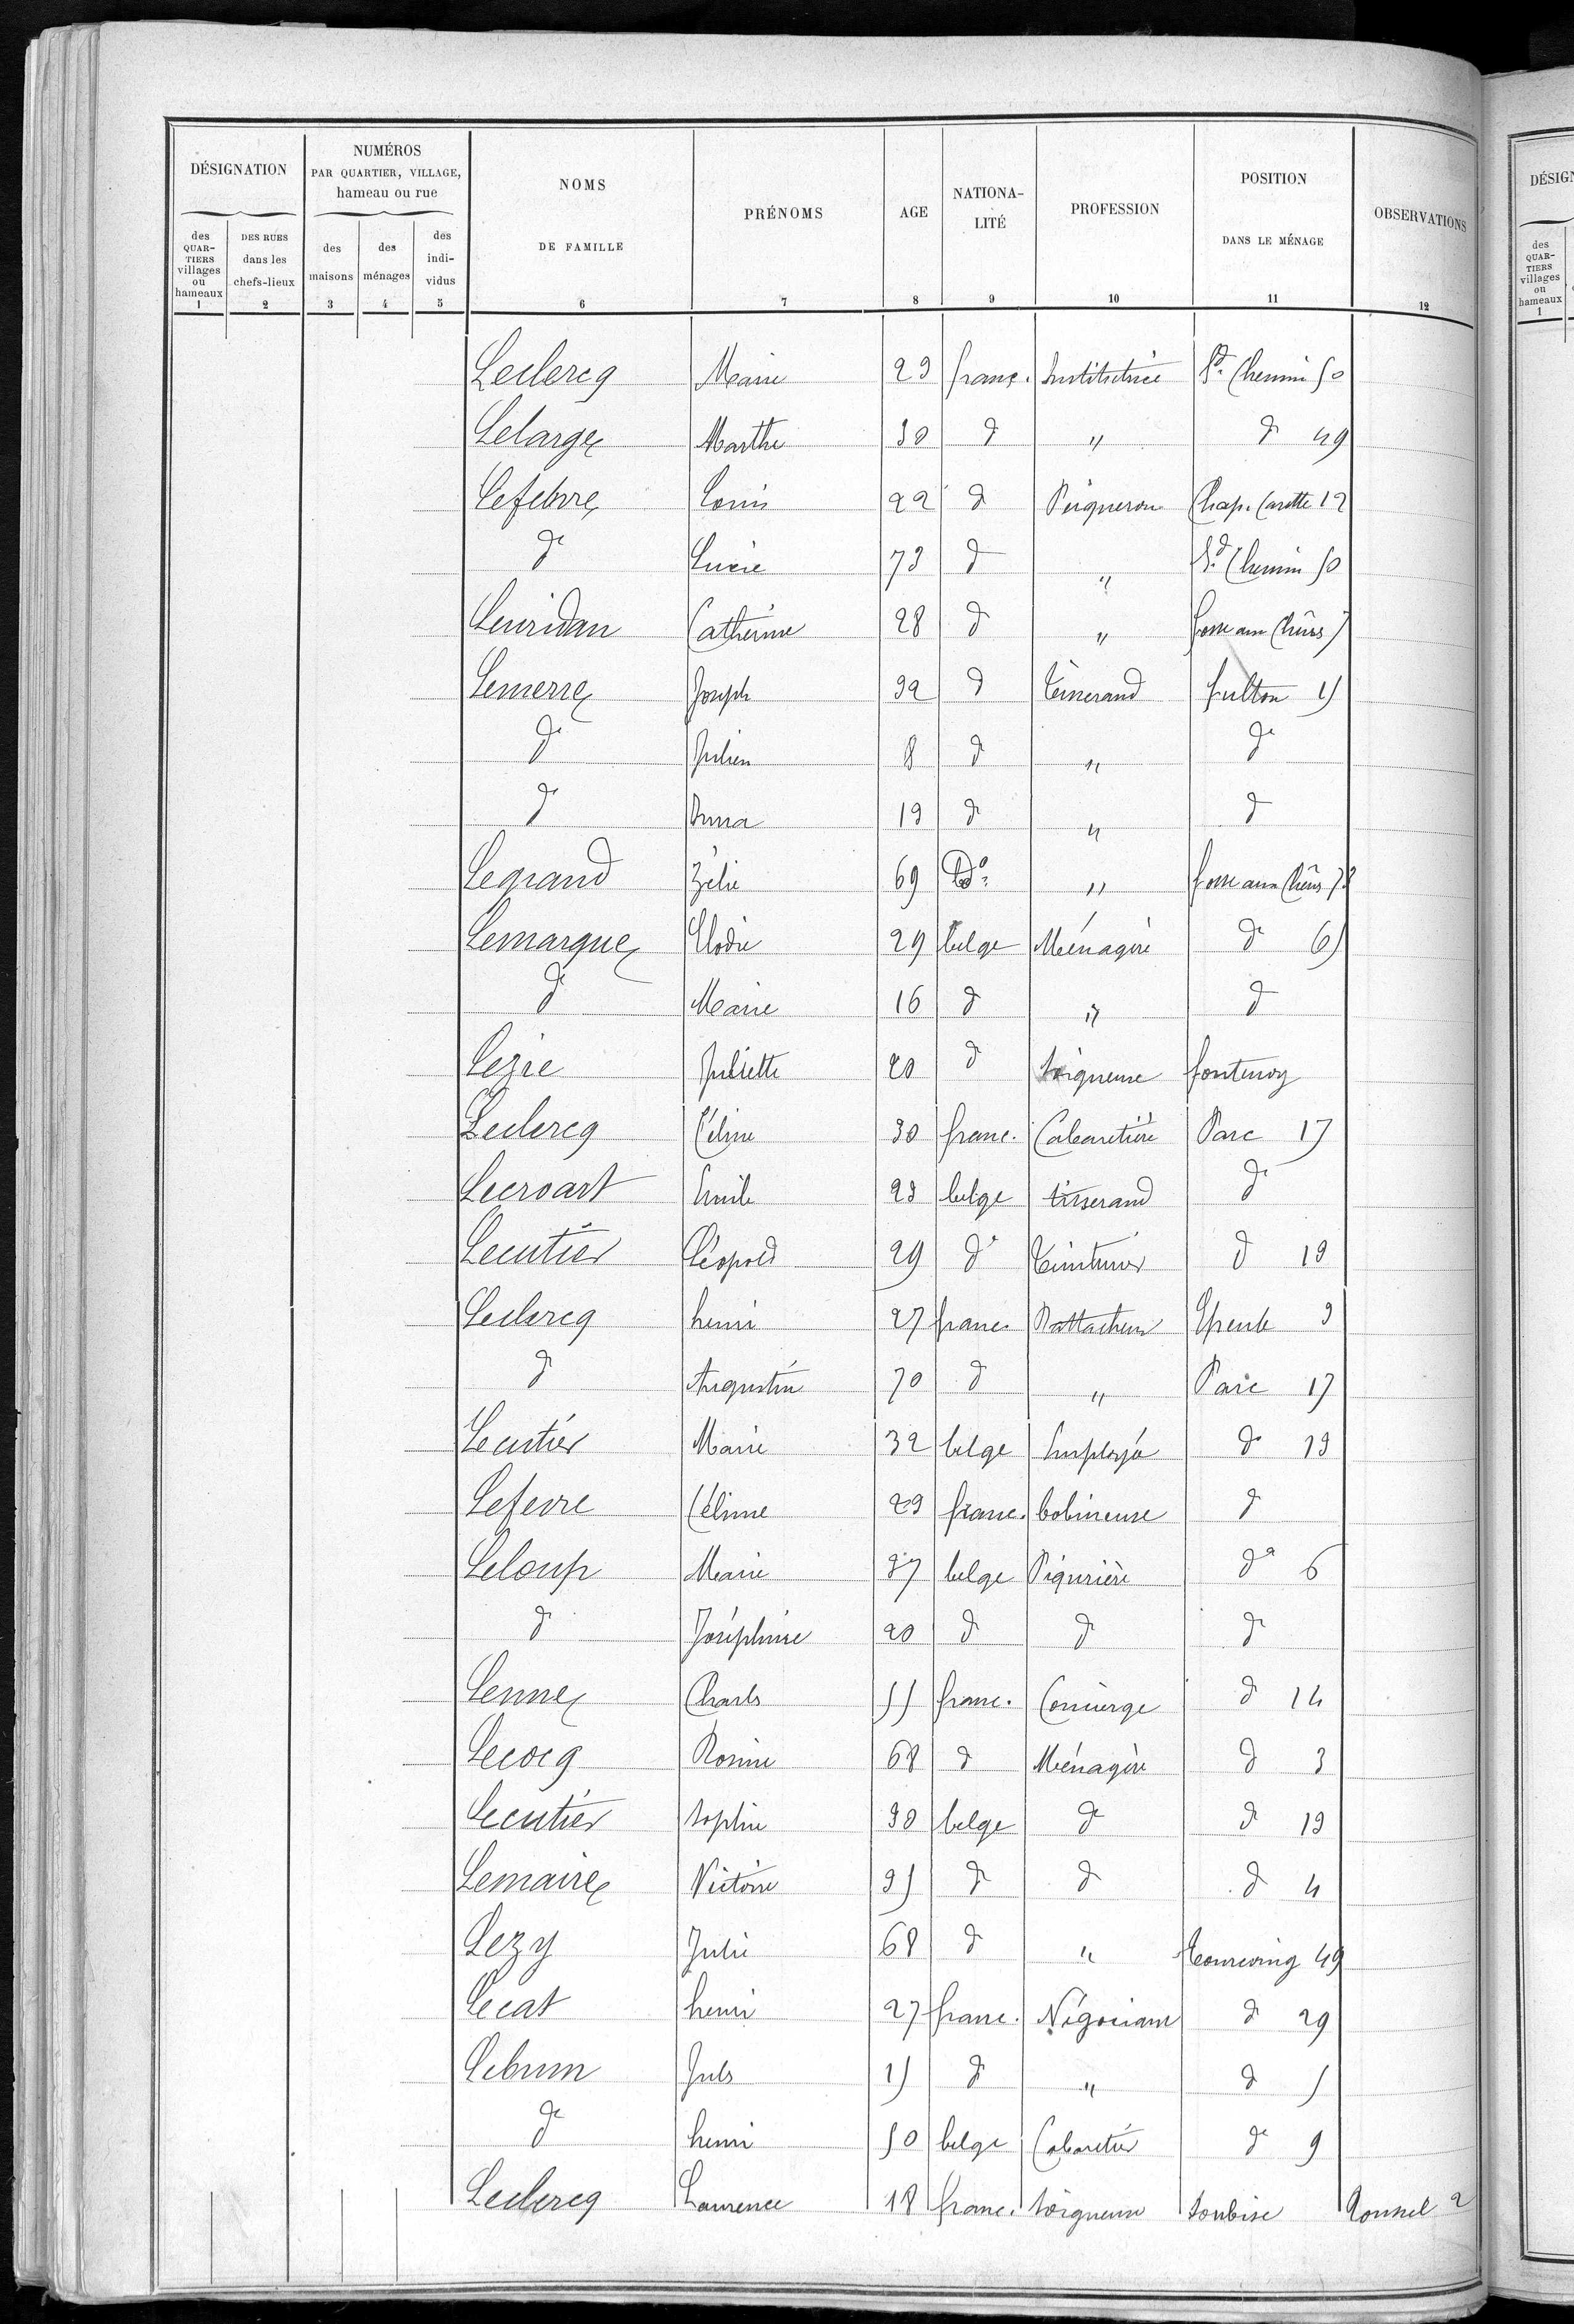 DÉSIGNATION
NUMÉROS
PAR QUARTIER, VILLAGE,
hameau ou rue
NOMS
DE FAMILLE
PRÉNOMS
AGE
NATIONA-
LITÉ
PROFESSION
POSITION
DANS LE MÉNAGE
OBSERVATIONS
des
QUAR-
TIERS
villages
ou
hameaux
DES RUES
dans les
chefs-lieux
des
maisons
des
ménages
des
indi-
vidus
1 2 3 4 5 6 7 8 9 10 11 12
Leclercq Marie 29 franç. Institutrice Gd. Chemin 50
Lelarge Marthe 30 d " d 49
Lefebvre Louis 22 d Peigneron Chap. Carette 12
d Lucie 73 d " Gd. Chemin 50
Leuridan Catherine 28 d " fosse aux Chênes
Lemerre Joseph 32 d Tisserand fulton 15
d Julien 8 d " d
d Anna 19 d " d
Legrand Zélie 69 Do. " fosse aux Chênes
Lemarque Elodie 29 belge Ménagère d 65
d Marie 16 d " d
Lezie Juliette 20 d Soigneuse fontenoy
Leclercq Céline 30 franc. Cabaretière Parc 17
Lecroart Emile 23 belge tisserand d
Lecutier Léopold 29 d Teinturier d 19
Leclercq henri 27 franc. Rattacheur Epeule 9
d Augustin 70 d " Parc 17
Lecutier Marie 32 belge Employé d 19
Lefevre Céline 29 franc. bobineuse d
Leloup Marie 37 belge Piqurière d 6
d Joséphine 20 d d d
Lenne Charles 55 franc. Concierge d 14
Lecocq Rosine 68 d Ménagère d 3
Lecutier Sophie 30 belge d d 19
Lemaire Victoire 35 d d d 4
Lezy Julie 68 d " Tourcoing 49
Lecat henri 27 franc. Négociant d 29
Lebrun Jules 15 d " d 5
d henri 50 belge Cabaretier d 9
Leclercq Laurence 18 franc. Soigneuse Soubise 2
DÉSIGN
des
QUAR-
TIERS
villages
ou
hameaux
1